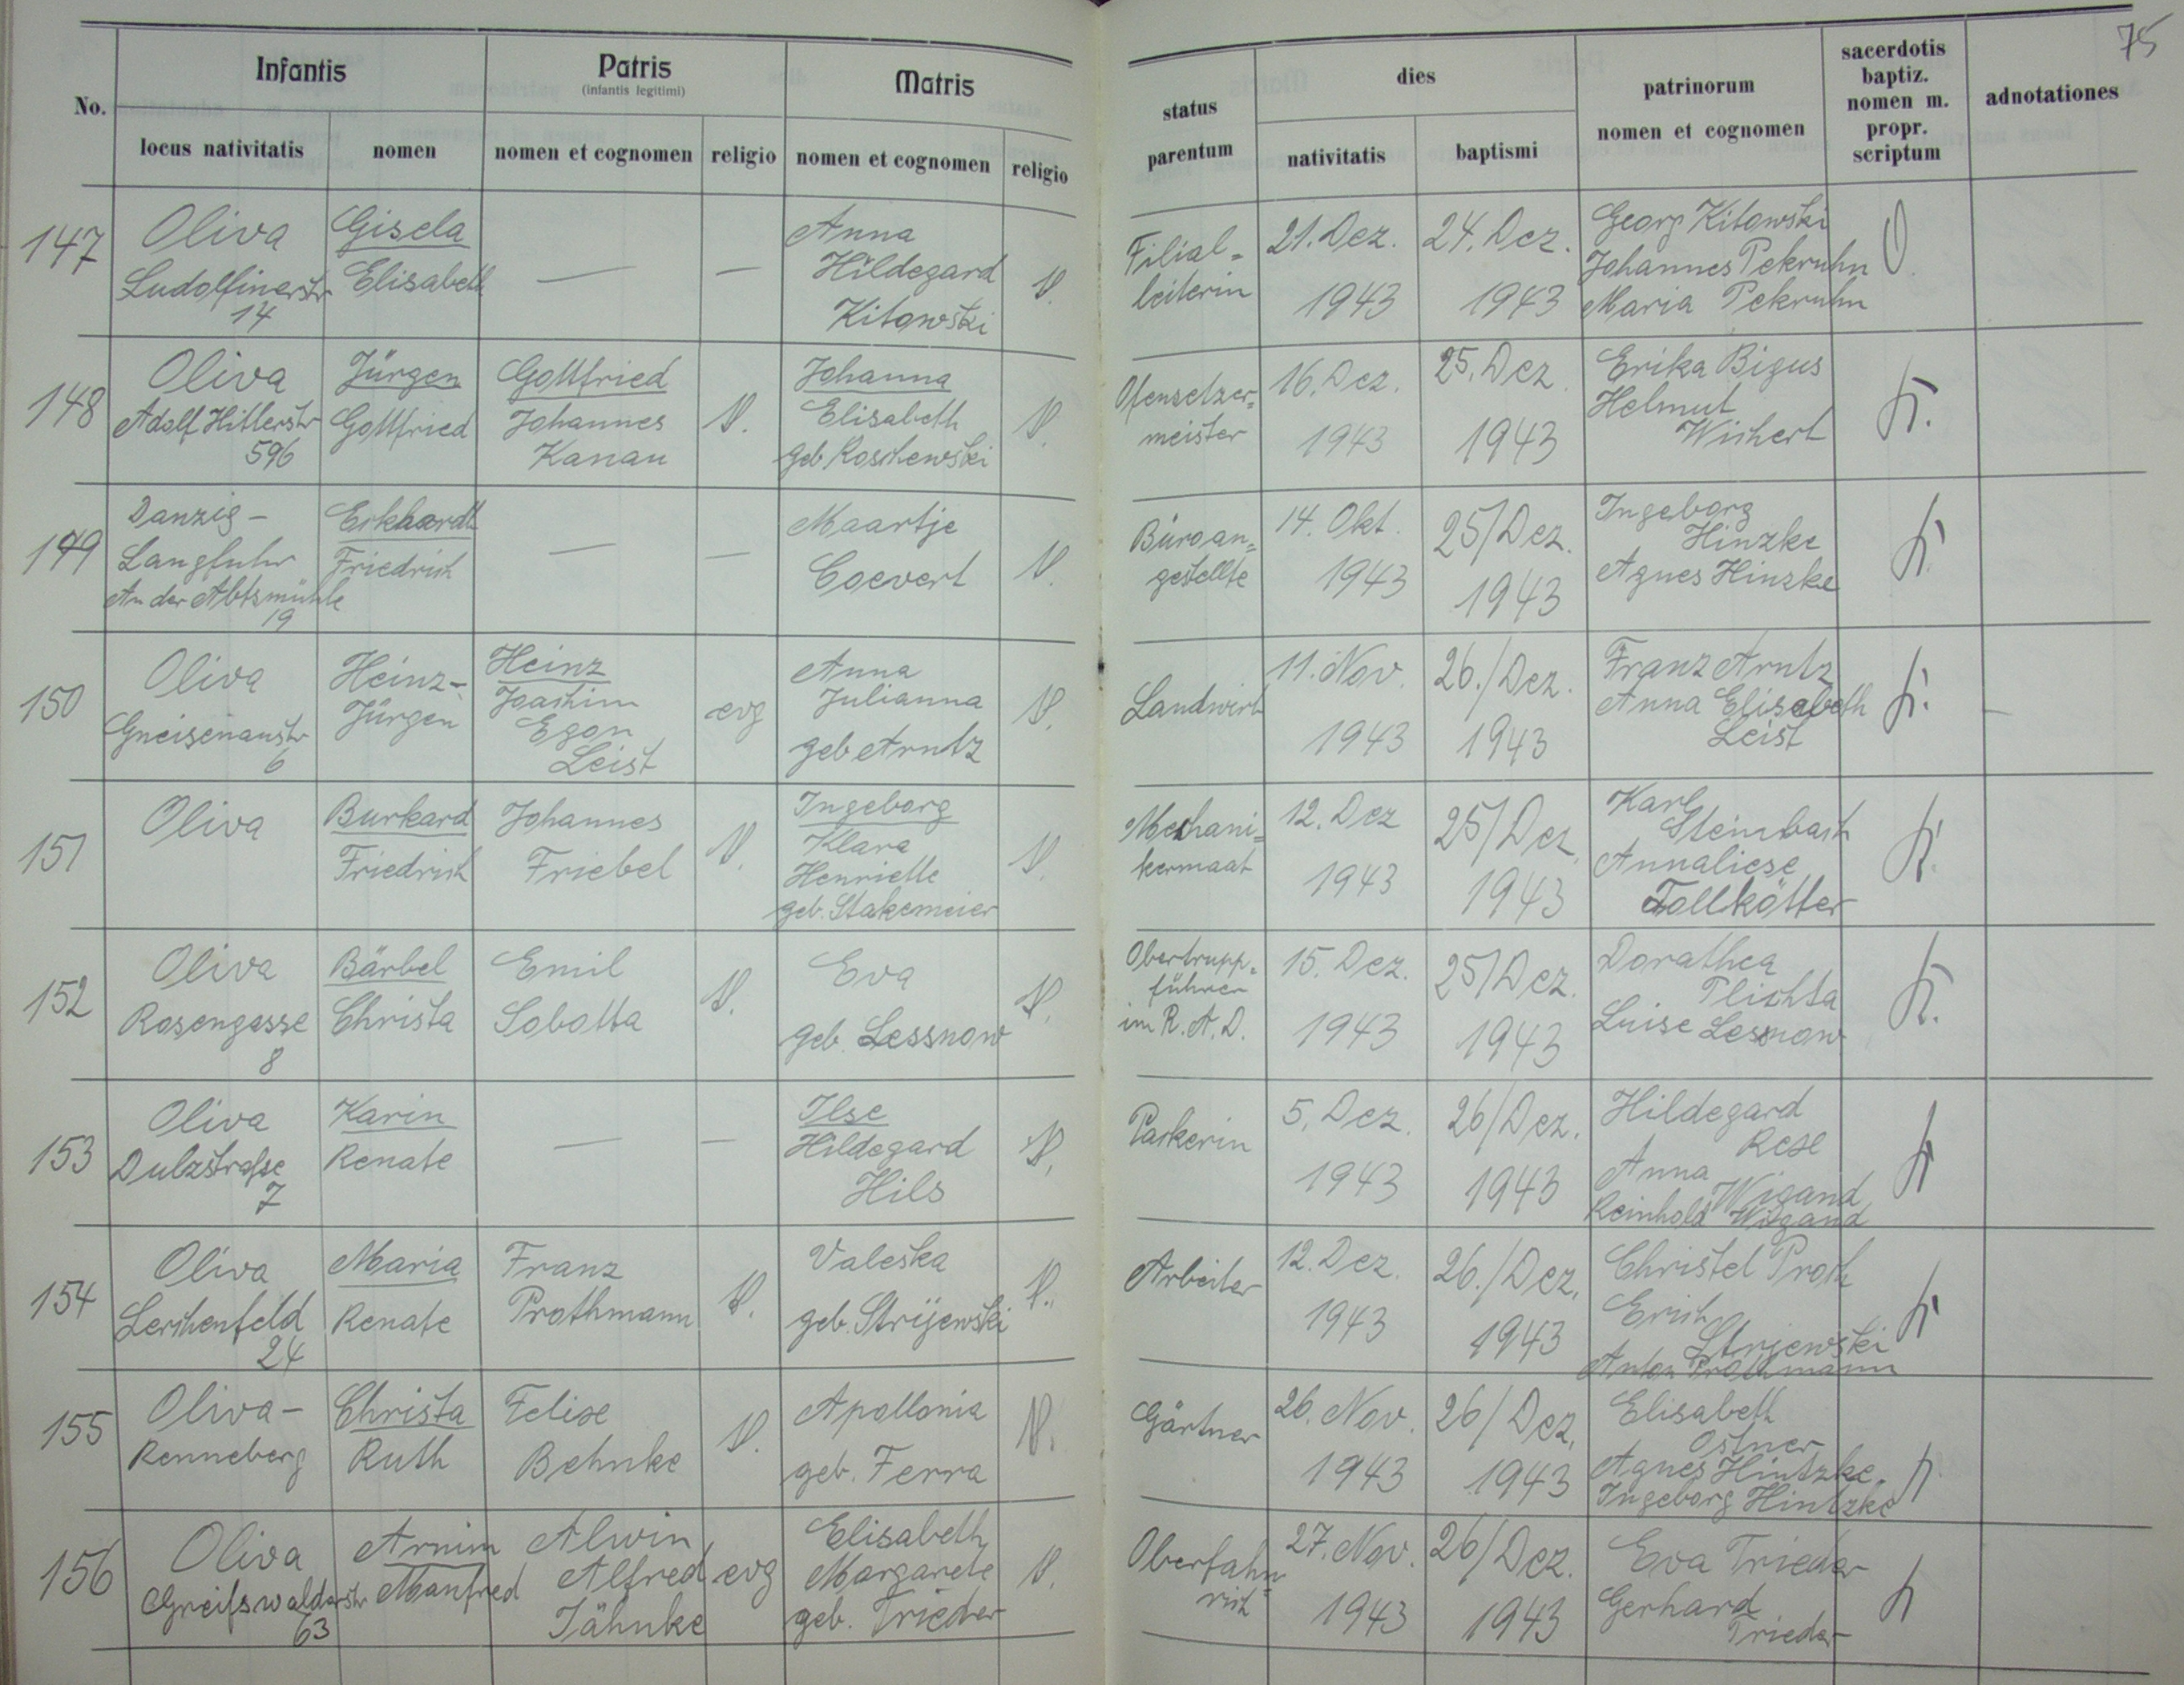 75
Infantis
Patris
(infantis legitimi)
Matris
status
parentum
dies
patrinorum
nomen et cognomen
sacerdotis
baptiz.
nomen m.
propr.
scriptum
adnotationes
No.
locus nativitatis
nomen
nomen et cognomen
religio
nomen et cognomen
religio
nativitatis
baptismi
147
Oliva
Ludolfinerstr
14
Gisela
Elisabeth
—
—
Anna
Hildegard
Kitowski
Filial-
leiterin
21. Dez.
1943
24. Dez.
1943
Georg Kitowski
Johannes Pekruhn
Maria Pekruhn
148
Oliva
Adolf Hitlerstr
596
Jürgen
Gottfried
Gottfried
Johannes
Kanau
Johanna
Elisabeth
geb Roschewski
Ofensetzer-
meister
16. Dez.
1943
25. Dez
1943
Erika Bigus
Helmut
Wichert
149
Danzig-
Langfuhr
An der Abtsmühle
19
Eckhardt
Friedrich
—
—
Maartje
Coevert
Büroan-
gestellte
14. Okt.
1943
25/Dez.
1943
Ingeborg
Hinzke
Agnes Hinzke
150
Oliva
Gneisenaustr
6
Heinz-
Jürgen
Heinz
Joachim
Egon
Leist
evg
Anna
Julianna
geb Arntz
Landwirt
11. Nov.
1943
26./Dez.
1943
Franz Arntz
Anna Elisabeth
Leist
151
Oliva
Burkard
Friedrich
Johannes
Friebel
Ingeborg
Klara
Henriette
geb. Stakemeier
Mechani-
kermaat
12. Dez
1943
25/Dez.
1943
Karl
Steinbach
Annaliese
Tollkötter
152
Oliva
Rosengasse
8
Bärbel
Christa
Emil
Sobotta
Eva
geb. Lessnow
Obertrupp-
führer
im R.A.D.
15. Dez.
1943
25/Dez.
1943
Dorathea
Plichta
Luise Lessnow
153
Oliva
Dulzstraße
7
Karin
Renate
—
—
Ilse
Hildegard
Hils
Packerin
5. Dez.
1943
26/Dez.
1943
Hildegard
Rese
Anna
Wigand
Reinhold Wigand
154
Oliva
Lerchenfeld
24
Maria
Renate
Franz
Prothmann
Valeska
geb. Strijewski
Arbeiter
12. Dez.
1943
26./Dez.
1943
Christel Proth
Erich
Strjewski
Anton Prothmann
155
Oliva-
Renneberg
Christa
Ruth
Felixe
Behnke
Apollonia
geb. Ferra
Gärtner
26. Nov.
1943
26/Dez.
1943
Elisabeth
Ostner
Agnes Hintzke
Ingeborg Hintzke
156
Oliva
Greifswalderstr
63
Armin
Manfred
Alwin
Alfred
Jähnke
evg
Elisabeth
Margarete
geb. Trieder
Oberfähn-
rich
27. Nov.
1943
26/Dez.
1943
Eva Trieder
Gerhard
Trieder